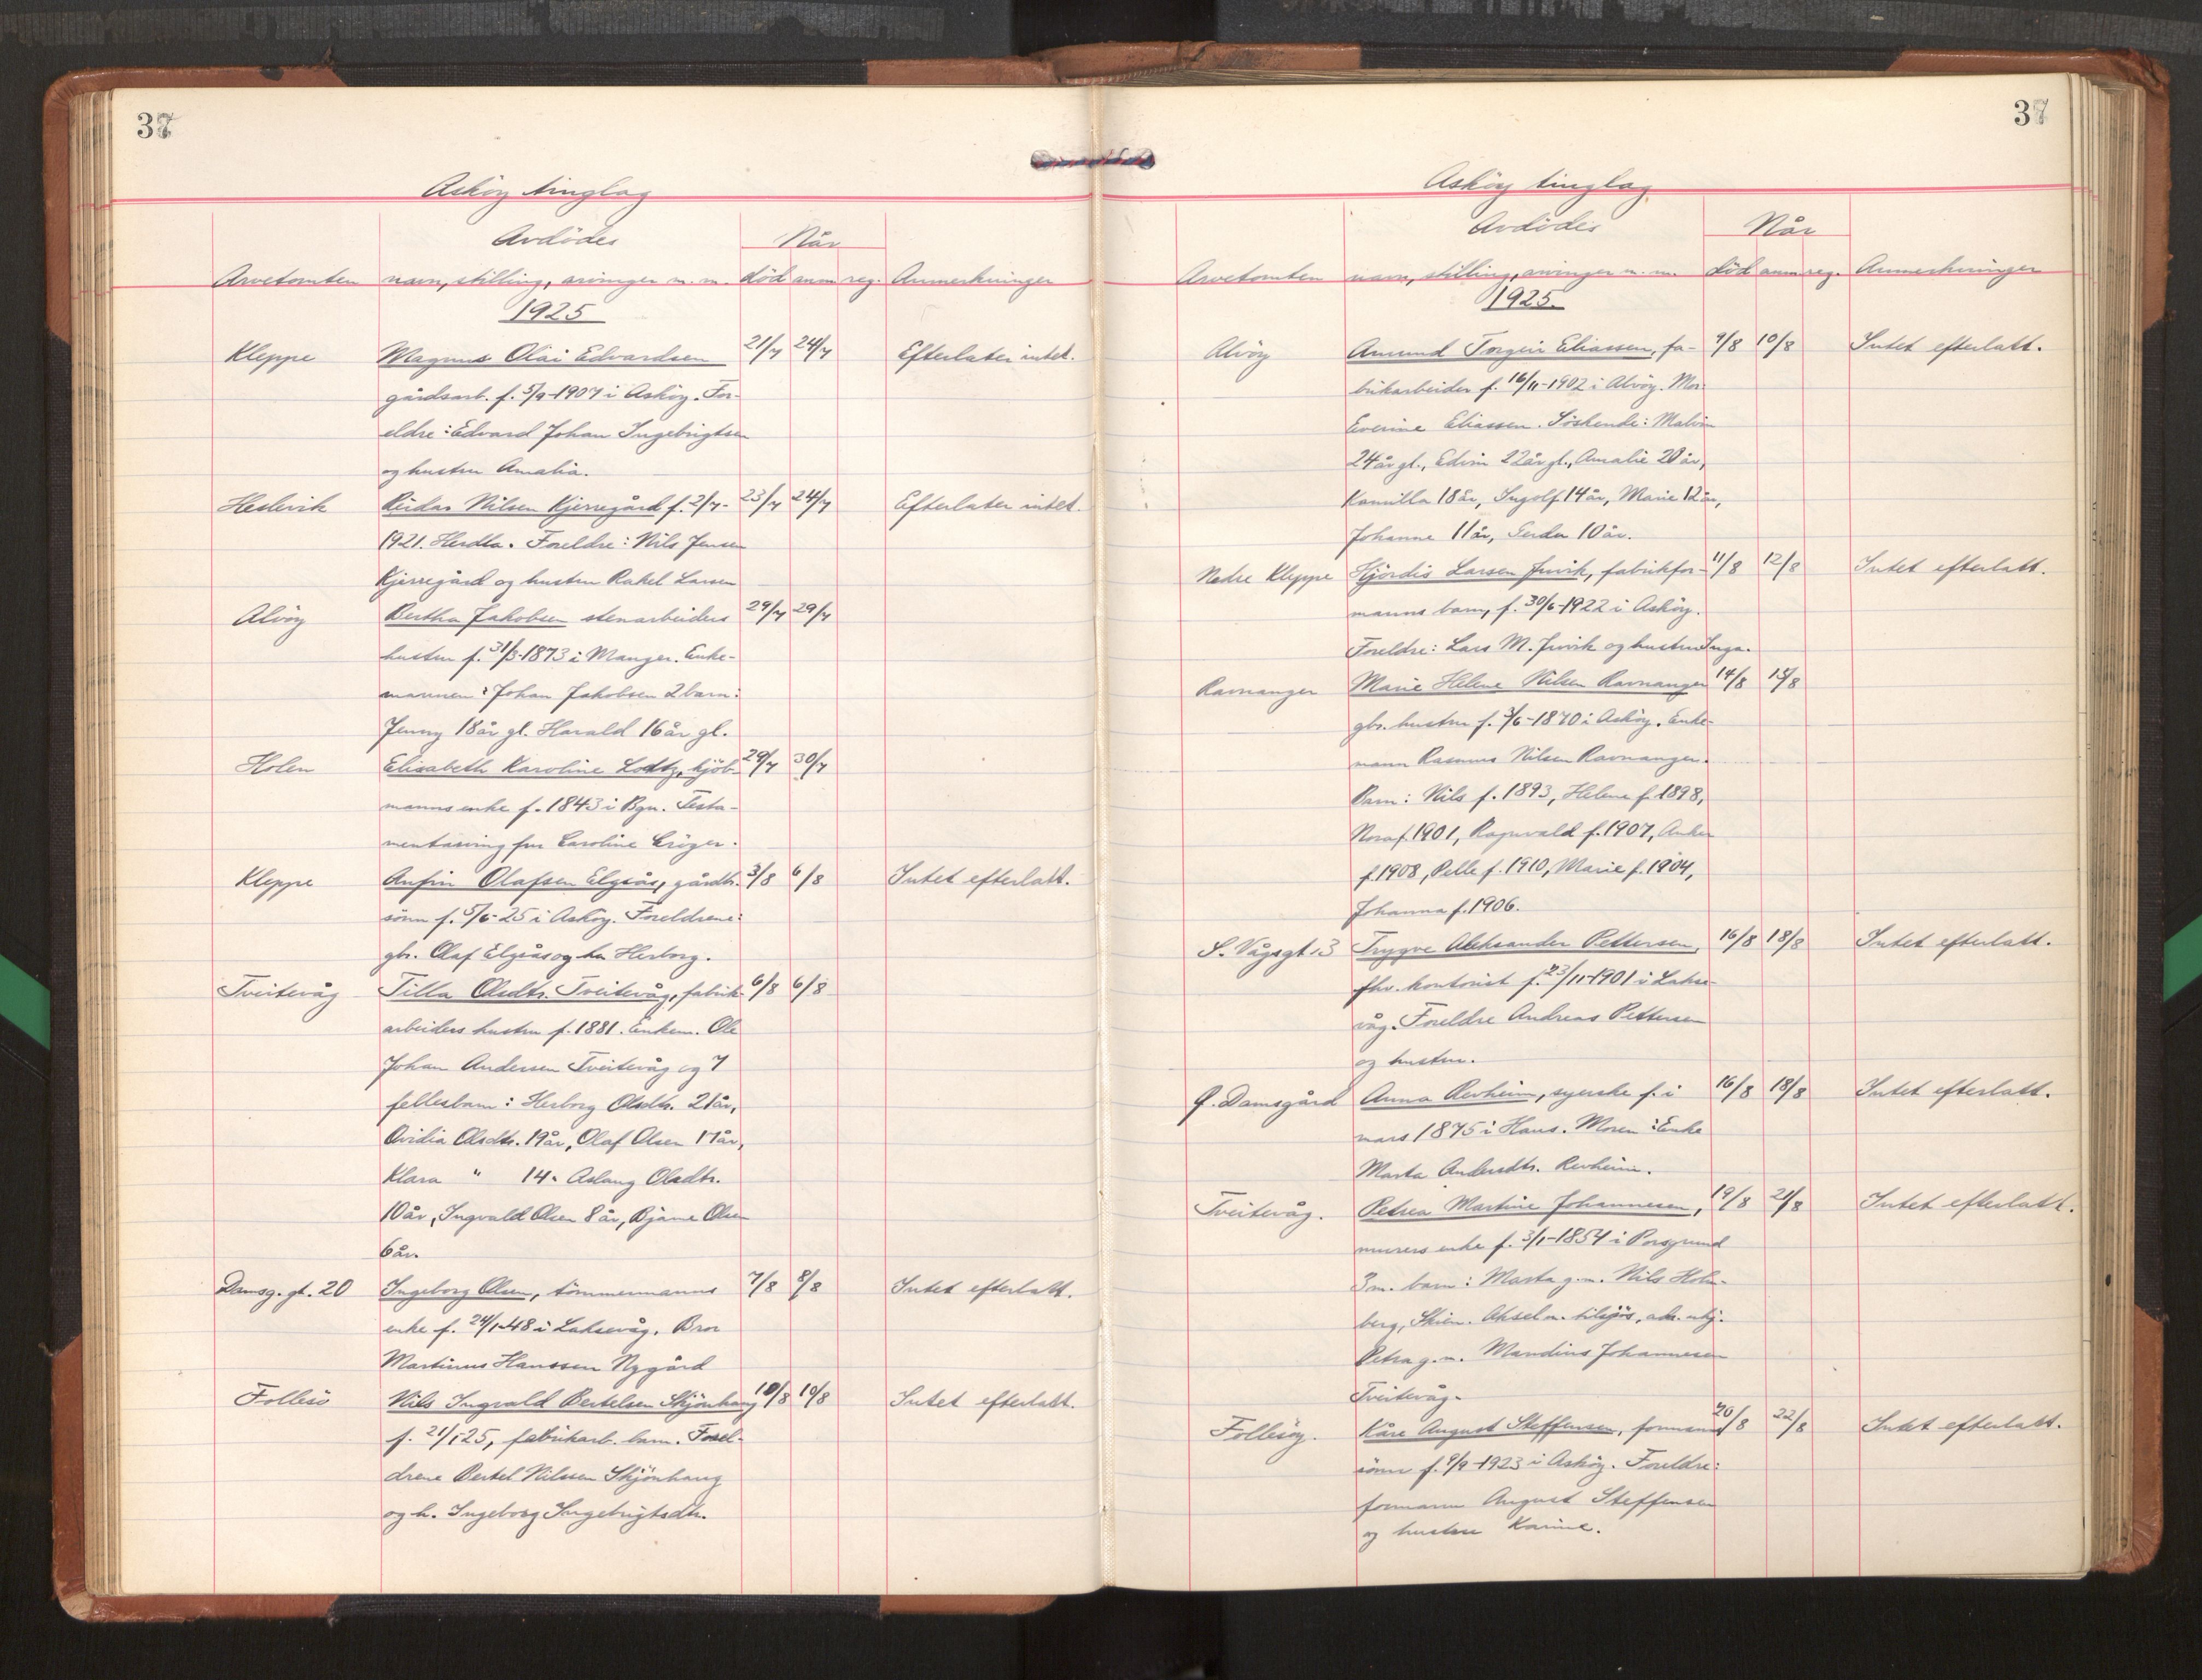 37
Asköy tinglag
Avdödes
Når
Arvetomten navn, stilling, arvinger m. m. död anm reg. Anmerkninger
1925
Kleppe Magnus Olai Edvardsen 21/7 24/7 Efterlater intet.
gårdsarb. f. 5/9-1907 i Asköy. For-
eldre: Edvard Johan Ingebrigtsen
og hustru Amalia.
Heslevik Reidar Nilsen Kjerregård f. 2/7- 23/7 24/7 Efterlater intet.
1921. Herdla. Foreldre: Nils Jensen
Kjerregård og hustru Rakel Larsen
Alvöy Bertha Jakobsen stenarbeiders 29/7 29/7
hustru f. 31/3-1873 i Manger. Enke-
mannen: Johan Jakobsen 2 barn:
Jenny 18 år gl. Harald 16 år gl.
Holen Elisabeth Karoline Loktz, kjöb- 29/7 30/7
manns enke f. 1843 i Bgn. Testa-
mentarving fru Caroline Cröger.
Kleppe Anfin Olafsen Elgsås, gårdbr. 3/8 6/8 Intet efterlatt.
sönn f. 5/6-25 i Asköy. Foreldrene:
gbr. Olaf Elgsås og hu Herborg.
Tveitevåg Tilla Olsdtr. Tveitevåg, fabrik- 6/8 6/8
arbeiders hustru f. 1881. Enkem. Ole
Johan Andersen Tveitevåg og 7
fellesbarn: Herborg Olsdtr. 21 år,
Ovidia Olsdtr. 19 år, Olaf Olsen 17 år,
Klara " 14 " Aslaug Olsdtr.
10 år, Ingvald Olsen 8 år, Bjarne Olsen
6 år.
Damsg. gt. 20 Ingeborg Olsen, tömmermanns 7/8 8/8 Intet efterlatt.
enke f. 24/1-48 i Laksevåg. Bror
Martinus Hanssen Nygård
Follesö Nils Ingvald Bertelsen Skjönhaug 10/8 10/8 Intet efterlatt.
f. 21/1 25, fabrikarb. barn. Forel-
drene Bertel Nilssen Skjönhaug
og h. Ingeborg Ingebrigtsdtr.
37
Asköy tinglag
Avdödes
Når
Arvetomten navn, stilling, arvinger m. m. död anm reg. Anmerkninger
1925.
Alvöy Amund Torgeir Eliassen, fa- 9/8 10/8 Intet efterlatt.
brikarbeider f. 16/11-1902 i Alvöy. Mor:
Everine Eliassen. Söskende: Malvin
24 år gl., Edvin 22 år gl., Amalie 20 år,
Kamilla 18 år, Ingolf 14 år, Marie 12 år,
Johanne 11 år, Gerda 10 år.
Nedre Kleppe Hjördis Larsen Juvik, fabrikfor- 11/8 12/8 Intet efterlatt.
manns barn, f. 30/6-1922 i Asköy.
Foreldre: Lars M. Juvik og hustru Inga.
Ravnanger Marie Helene Nilsen Ravnanger 14/8 15/8
gbr. hustru f. 3/6-1870 i Asköy. Enke-
mann Rasmus Nilsen Ravnanger.
Barn: Nils f. 1893, Helene f. 1898,
Nora f. 1901, Ragnvald f. 1907, Anker
f. 1908, Pelle f. 1910, Marie f. 1904,
Johanna f. 1906.
S. Vågsgt 13 Trygve Aleksander Pettersen, 16/8 18/8 Intet efterlatt.
fhv. kontorist f. 23/11-1901 i Lakse-
våg. Foreldre Andreas Pettersen
og hustru.
G. Damsgård Anna Revheim, syerske f. i 16/8 18/8 Intet efterlatt.
mars 1875 i Haus. Moren: Enke
Marta Andersdtr. Revheim.
Tveitevåg. Petrea Martine Johannesen, 19/8 21/8 Intet efterlatt.
murers enke f. 3/1-1854 i Porsgrund
3 m. barn: Marta g. m. Nils Holm-
berg, Skien. Aksel m. tilsjös, adr. ukj.
Petra g. m. Mandius Johannesen
Tveitevåg.
Follesöy. Kåre August Steffensen, formanns 20/8 22/8 Intet efterlatt.
sönn f. 9/9-1923 i Asköy. Foreldre:
formann August Steffensen
og hustru Karine.